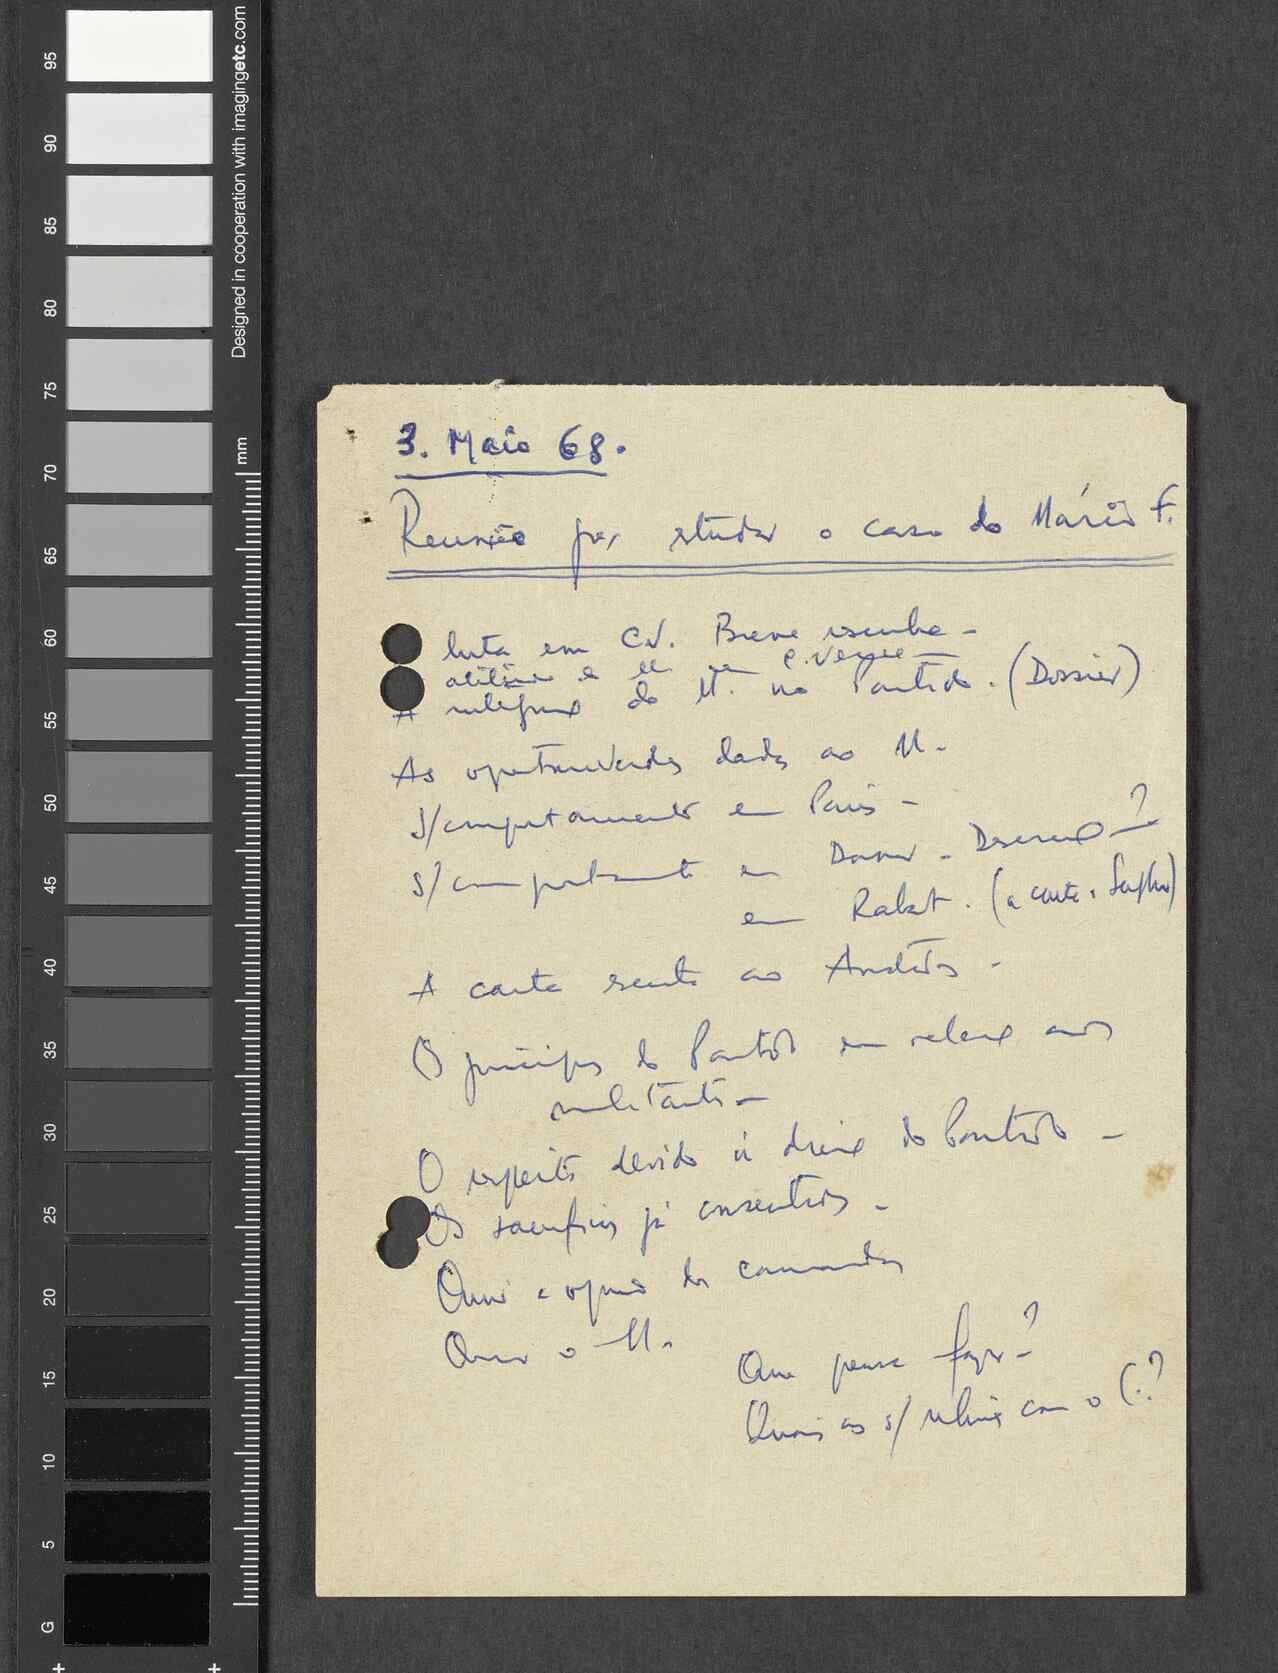 95
90
85
80
75
70
65
60
55
50
45
40
35
30
25
20
15
10
5
G
Designed in cooperation with imagingetc.com
mm
3. Maio 68.
Reunião para estudar o caso do Mário F.
luta em C.V. Breve resenha -
C. Verde -
A do M. no Partido. (Dossier)
As oportunidades dadas ao M.
s/comportamento em Paris -
s/comportamento em Dakar -
em Rabat. (a carta
A carta escrita ao Aristides -
Os princípios do Partido em relação aos
militantes -
O respeito devido à direcç do Partido -
Os sacrifícios já consentidos -
Ouvir a opinião dos camaradas
Ouvir o M.
Que pensa fazer?
Quais as s/ relações com o C.?